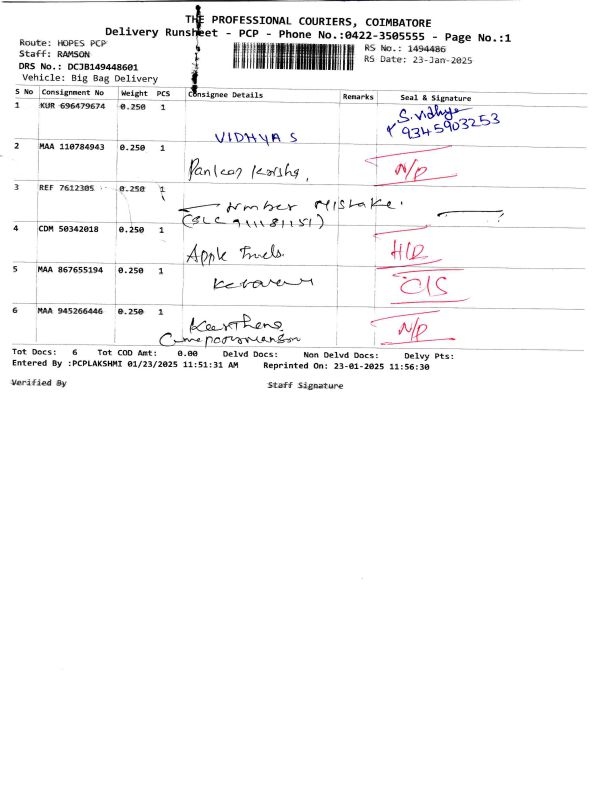 THE PROFESSIONAL COURIERS, COIMBATORE
Delivery Runsheet - PCP - Phone No.:0422-3505555 - Page No.:1
Route: HOPES PCP
Staff: RAMSON
DRS No.: DCJB149448601
Vehicle: Big Bag Delivery
RS No.: 1494486
RS Date: 23-Jan-2025
S No Consignment No Weight PCS Consignee Details Remarks Seal & Signature
1 KUR 696479674 0.250 1
VIDHYA S
S.Vidhya
9345903253
2 MAA 110784943 0.250 1
N/P
3 REF 7612305 0.250 1
Number Mistake.
4 CDM 50342018 0.250 1
Apple
5 MAA 867655194 0.250 1
6 MAA 945266446 0.250 1
N/P
Tot Docs: 6 Tot COD Amt: 0.00 Delvd Docs: Non Delvd Docs: Delvy Pts:
Entered By :PCPLAKSHMI 01/23/2025 11:51:31 AM Reprinted On: 23-01-2025 11:56:30
Verified By Staff Signature